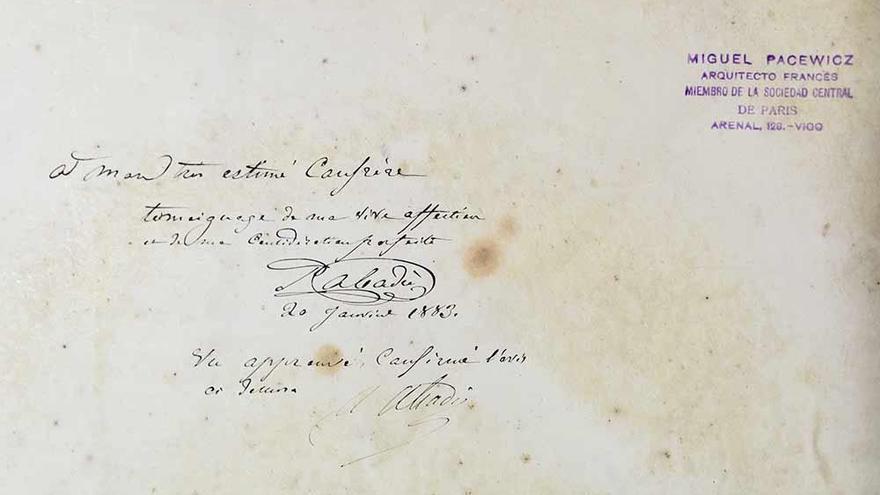 MIGUEL PACEWICZ
ARQUITECTO FRANCÉS
MIEMBRO DE LA SOCIEDAD CENTRAL
DE PARIS
ARENAL, 128.-VIGO
A mon très estimé Confrère
temoignage de ma vive affection
et de ma Considération parfaite
P Abadie
20 Janvier 1883.
Vu approuvé, Confirmé l'avis
ci dessus
Abadie